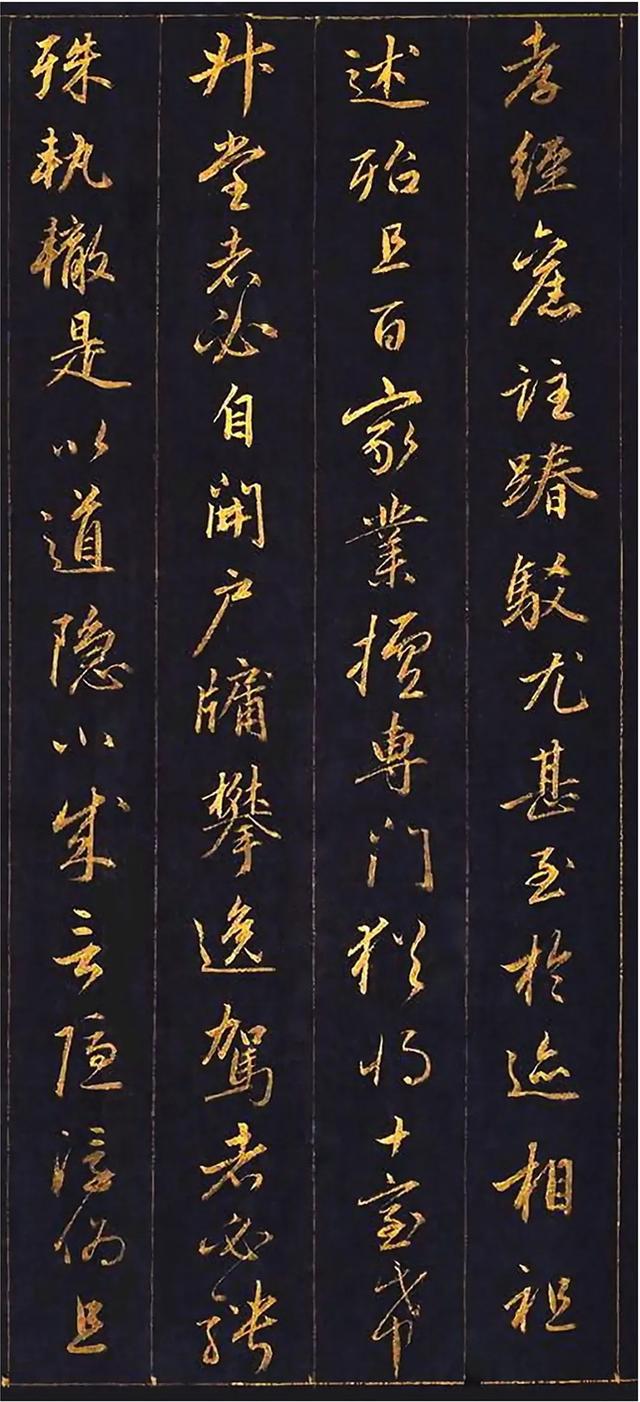 孝經舊註踳駁尤甚至於迹相祖
述殆且百家業擅專門猶將十室希
升堂者必自開戶牖攀逸駕者必騁
殊軌轍是以道隱小成言隱浮偽且